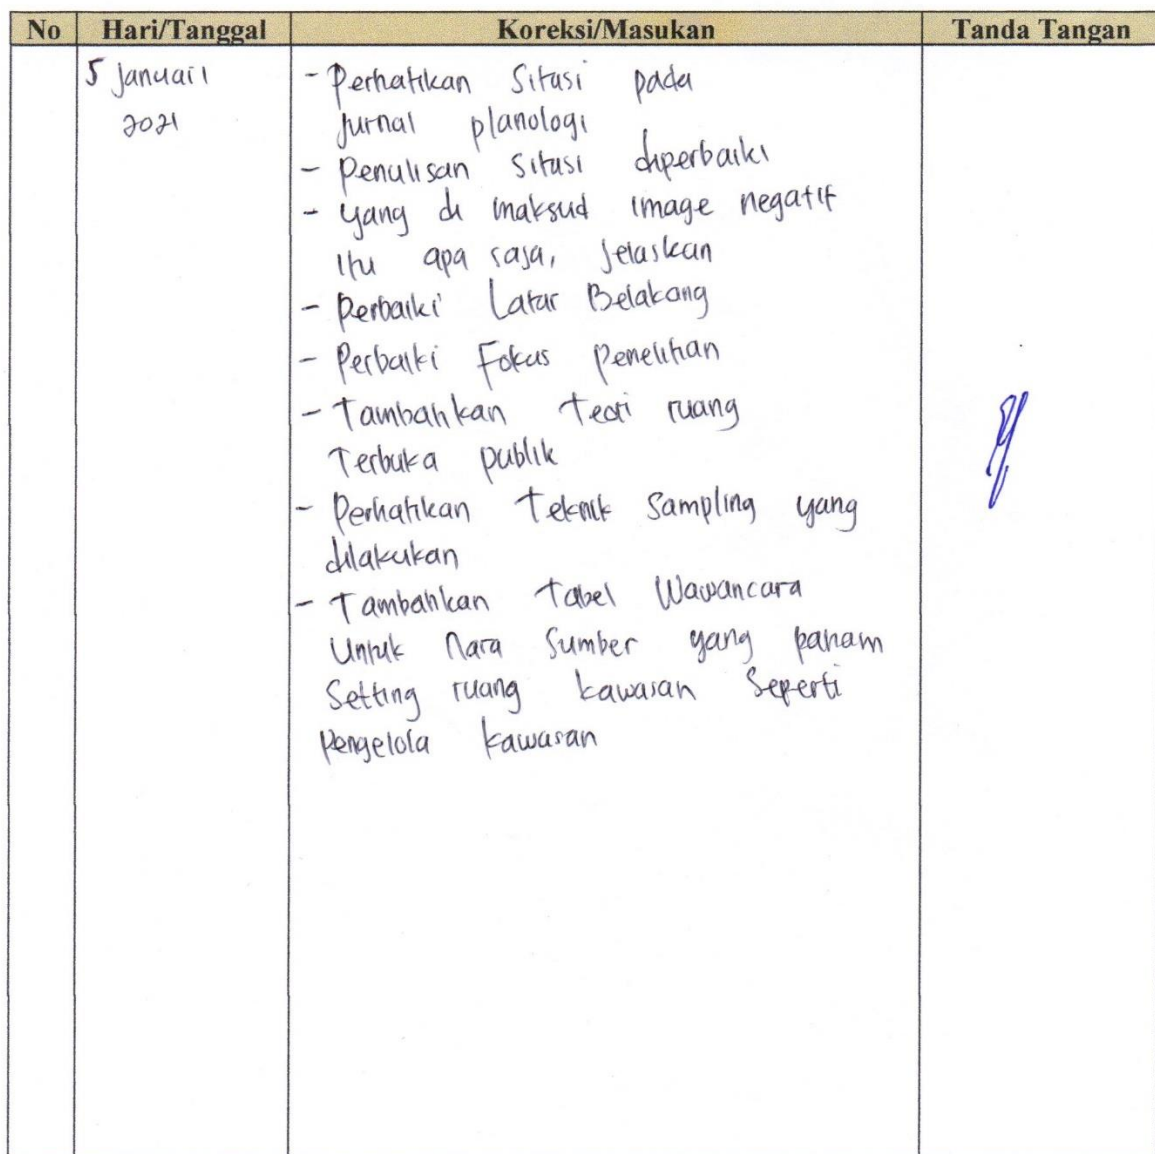 No Hari/Tanggal Koreksi/Masukan Tanda Tangan
5 Januari - Perhatikan Sitasi pada
2021 Jurnal planologi
- Penulisan Sitasi diperbaiki
- yang di maksud image negatif
itu apa saja, Jelaskan
- Perbaiki Latar Belakang
- Perbaiki Fokus Penelitian
- Tambahkan Teori ruang
Terbuka publik
- Perhatikan Teknik Sampling yang
dilakukan
- Tambahkan Tabel Wawancara
Untuk Nara Sumber yang paham
Setting ruang kawasan Seperti
Pengelola kawasan